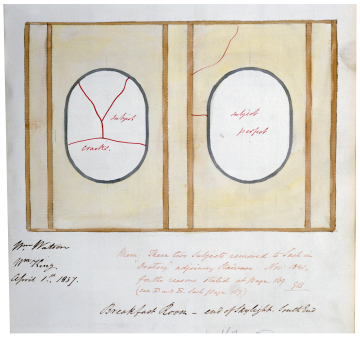 subject
cracks.
subject
perfect
Wm Watson
Wm King
April 1st. 1837.
These two Subjects removed to Sash in
adjoining Staircase Nov. 1841.
for the reasons stated at page 189.
Breakfast Room — end of Skylight. South End